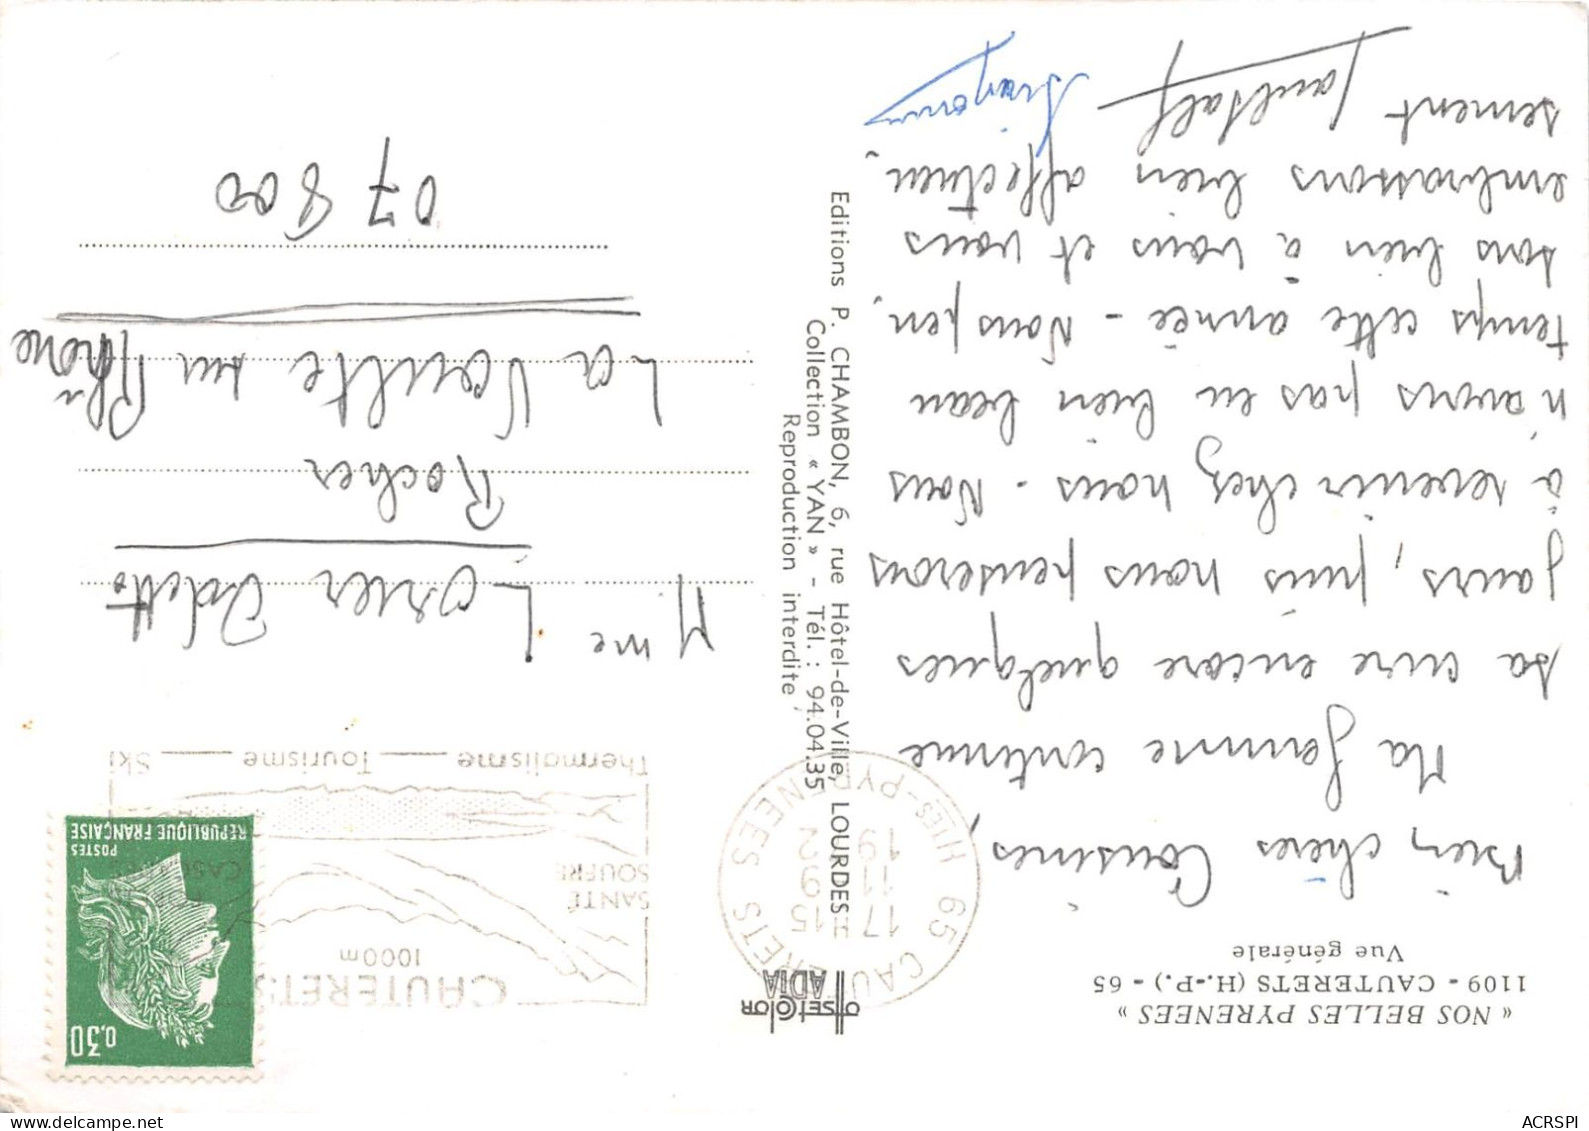 « NOS BELLES PYRENEES »
1109 - CAUTERETS (H.-P.) - 65
Vue générale
Bien chères Cousines,
Ma femme continue
sa cure encore quelques
jours, puis nous penserons
à revenir chez nous - Nous
n'avons pas eu bien beau
temps cette année - Nous pen.
sons bien à vous et vous
embrassons bien affectueu.
sement
Editions P. CHAMBON, 6, rue Hôtel-de-Ville, LOURDES
Collection « YAN » - Tél. : 94.04.35
Reproduction interdite
OFFSET COLOR
ADIA
65 CAUTERETS
17H15
11 9
19 2
HTES-PYRENEES
CAUTERETS
1000m
SANTÉ
SOUFRE
Thermalisme — Tourisme — Ski
0,30
POSTES
REPUBLIQUE FRANÇAISE
Mme Losier Odette
Rocher
La Voulte sur Rhône
07800
ACRSPI